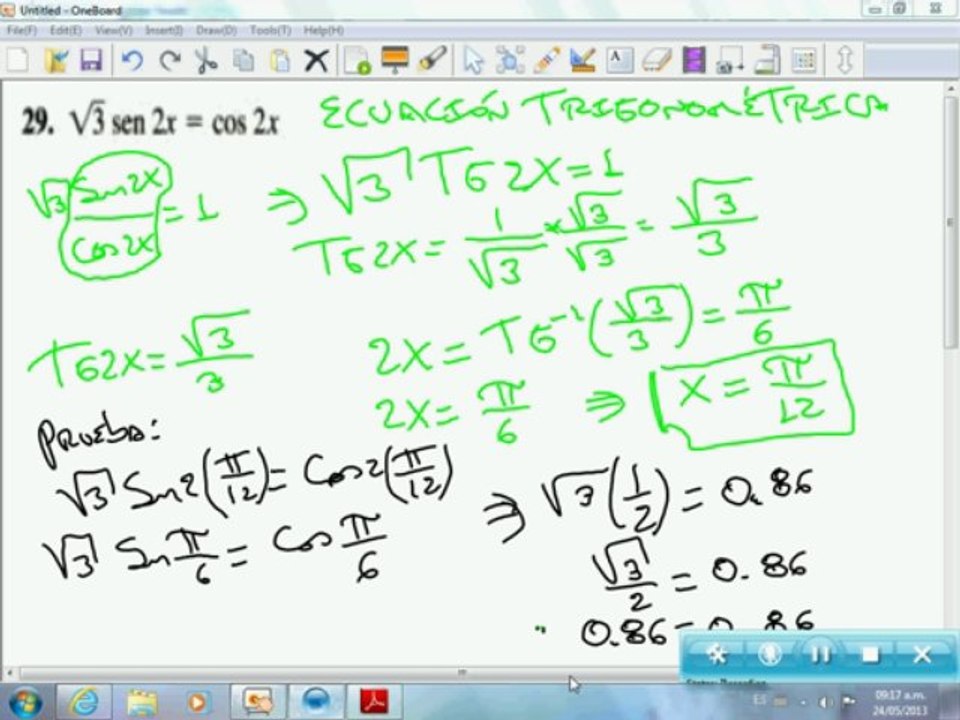 Untitled - OneBoard
File(F) Edit(E) View(V) Insert(I) Draw(D) Tools(T) Help(H)
29. √3 sen 2x = cos 2x
ECUACIÓN TRIGONOMÉTRICA
√3 Sen2X/Cos2X = 1 ⇒ √3 TG2X = 1
TG2X = 1/√3 × √3/√3 = √3/3
TG2X = √3/3
2X = TG⁻¹(√3/3) = π/6
2X = π/6 ⇒ X = π/12
Prueba:
√3 Sen2(π/12) = Cos2(π/12)
√3 Sen π/6 = Cos π/6
⇒ √3(1/2) = 0.86
√3/2 = 0.86
0.86 = 0.86
ES
09:17 a.m.
24/05/2013